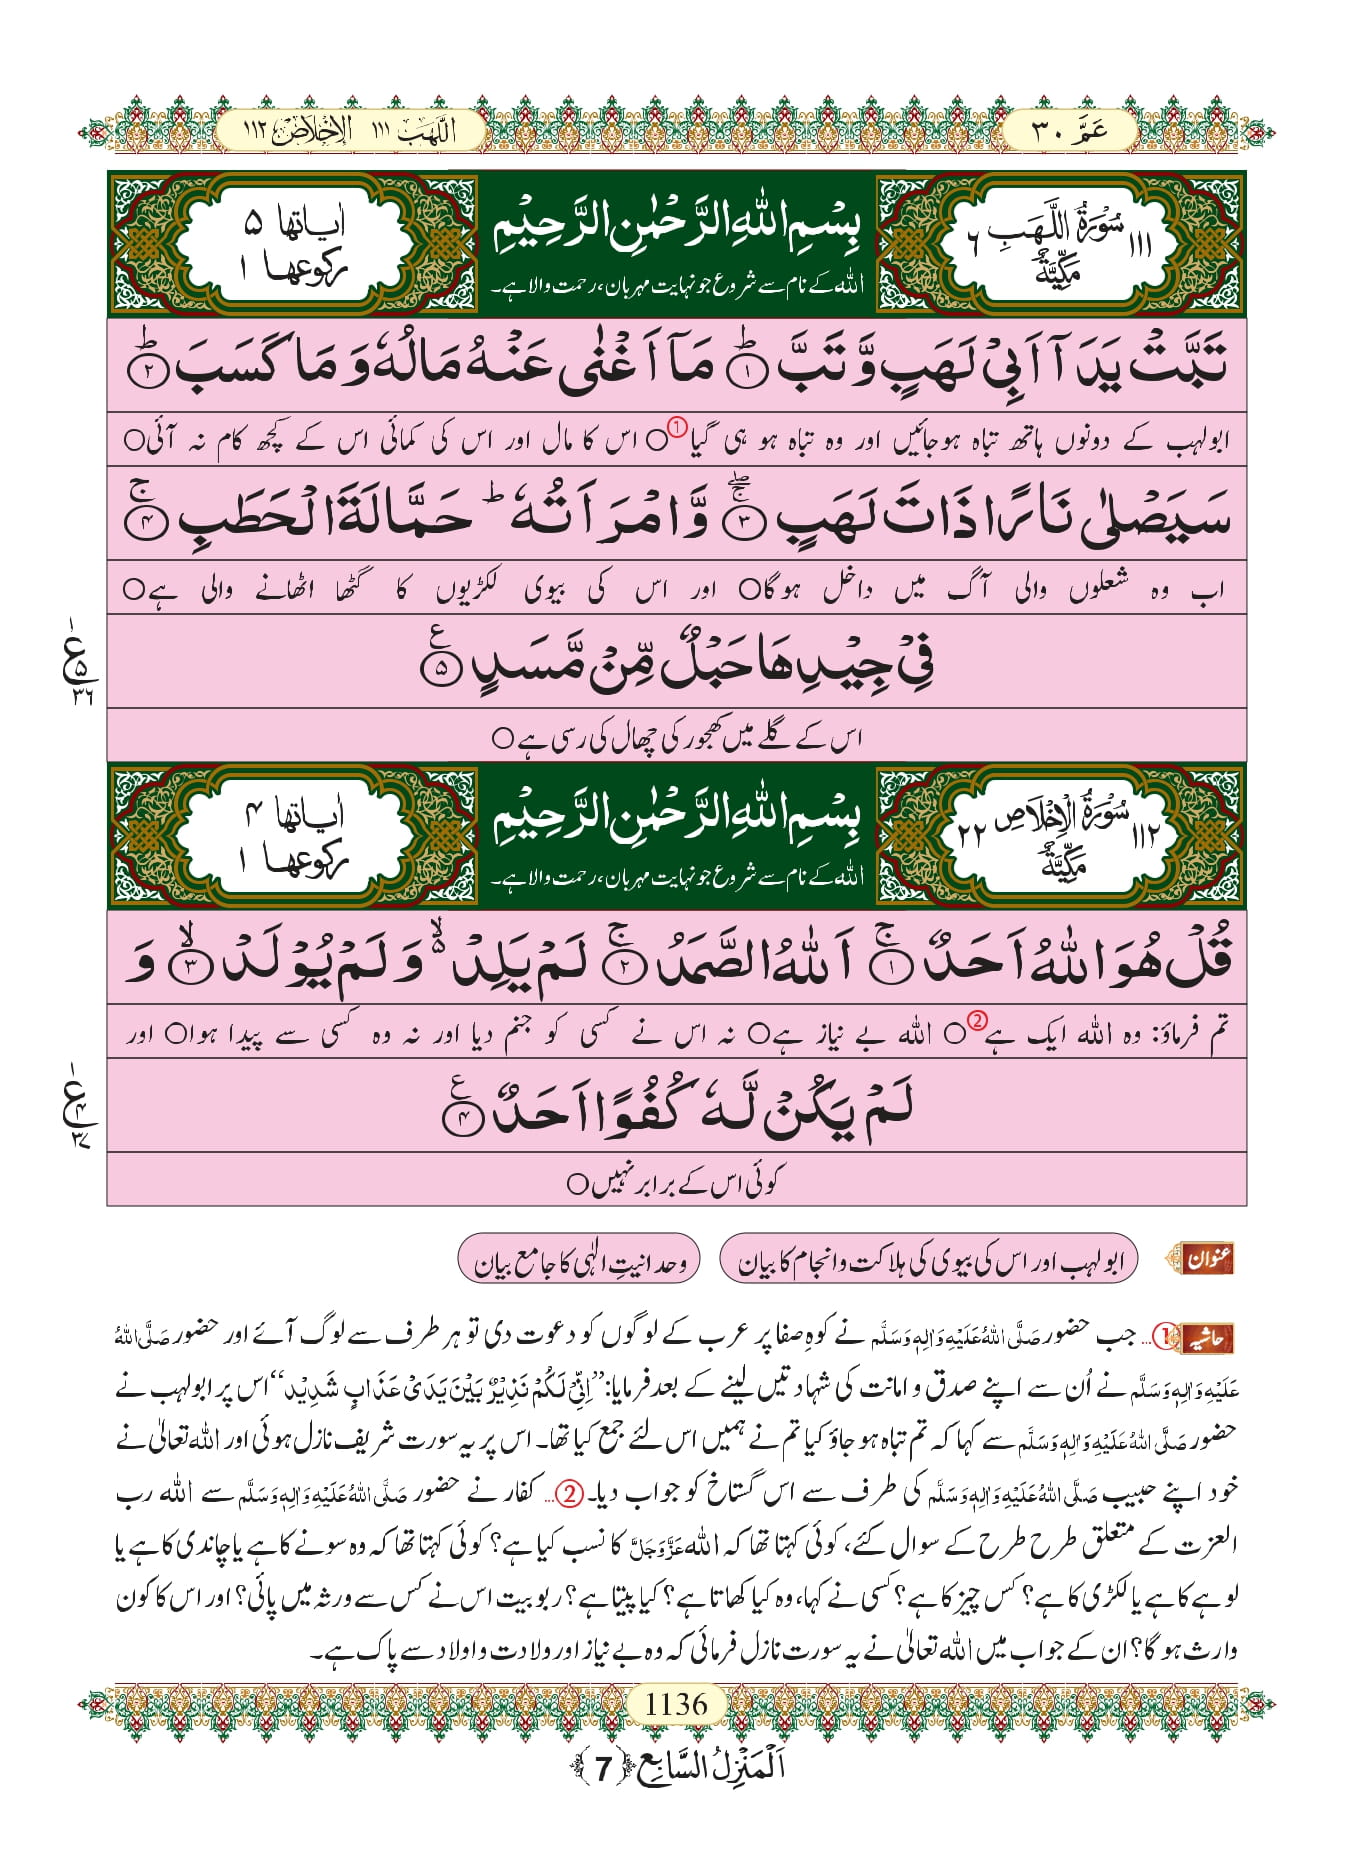 عَمَّ ۳۰
اللَّھَب ۱۱۱ الْاِخْلَاص ۱۱۲
۱۱۱ سُوْرَۃُ اللَّھَبِ ۶
مَکِّیَّۃٌ
بِسْمِ اللہِ الرَّحْمٰنِ الرَّحِیْمِ
اللہ کے نام سے شروع جو نہایت مہربان، رحمت والا ہے۔
اٰیاتھا ۵
رکوعھا ۱
تَبَّتْ یَدَاۤ اَبِیْ لَهَبٍ وَّ تَبَّؕ۝۱ مَاۤ اَغْنٰى عَنْهُ مَالُهٗ وَ مَا كَسَبَؕ۝۲
ابولہب کے دونوں ہاتھ تباہ ہوجائیں اور وہ تباہ ہو ہی گیا①○ اس کا مال اور اس کی کمائی اس کے کچھ کام نہ آئی○
سَیَصْلٰى نَارًا ذَاتَ لَهَبٍۚۖ۝۳ وَّ امْرَاَتُهٗؕ حَمَّالَةَ الْحَطَبِۚ۝۴
اب وہ شعلوں والی آگ میں داخل ہوگا○ اور اس کی بیوی لکڑیوں کا گٹھا اٹھانے والی ہے○
فِیْ جِیْدِهَا حَبْلٌ مِّنْ مَّسَدٍ۠۝۵
۱
ع
۵
۳۶
اس کے گلے میں کھجور کی چھال کی رسی ہے○
۱۱۲ سُوْرَۃُ الْاِخْلَاصِ ۲۲
مَکِّیَّۃٌ
بِسْمِ اللہِ الرَّحْمٰنِ الرَّحِیْمِ
اللہ کے نام سے شروع جو نہایت مہربان، رحمت والا ہے۔
اٰیاتھا ۴
رکوعھا ۱
قُلْ هُوَ اللّٰهُ اَحَدٌۚ۝۱ اَللّٰهُ الصَّمَدُۚ۝۲ لَمْ یَلِدْ ﳔ وَ لَمْ یُوْلَدْۙ۝۳ وَ
تم فرماؤ: وہ اللہ ایک ہے②○ اللہ بے نیاز ہے○ نہ اس نے کسی کو جنم دیا اور نہ وہ کسی سے پیدا ہوا○ اور
لَمْ یَكُنْ لَّهٗ كُفُوًا اَحَدٌ۠۝۴
۱
ع
۴
۳۷
کوئی اس کے برابر نہیں○
عنوان
ابولہب اور اس کی بیوی کی ہلاکت وانجام کا بیان
وحدانیتِ الٰہی کا جامع بیان
حاشیہ ①... جب حضور صَلَّی اللہُ عَلَیْہِ وَاٰلِہٖ وَسَلَّم نے کوہِ صفا پر عرب کے لوگوں کو دعوت دی تو ہر طرف سے لوگ آئے اور حضور صَلَّی اللہُ
عَلَیْہِ وَاٰلِہٖ وَسَلَّم نے اُن سے اپنے صدق و امانت کی شہادتیں لینے کے بعد فرمایا: ’’اِنِّیْ لَکُمْ نَذِیْرٌ بَیْنَ یَدَیْ عَذَابٍ شَدِیْد‘‘ اس پر ابولہب نے
حضور صَلَّی اللہُ عَلَیْہِ وَاٰلِہٖ وَسَلَّم سے کہا کہ تم تباہ ہو جاؤ کیا تم نے ہمیں اس لئے جمع کیا تھا۔ اس پر یہ سورت شریف نازل ہوئی اور اللہ تعالیٰ نے
خود اپنے حبیب صَلَّی اللہُ عَلَیْہِ وَاٰلِہٖ وَسَلَّم کی طرف سے اس گستاخ کو جواب دیا۔ ②... کفار نے حضور صَلَّی اللہُ عَلَیْہِ وَاٰلِہٖ وَسَلَّم سے اللہ رب
العزت کے متعلق طرح طرح کے سوال کئے، کوئی کہتا تھا کہ اللہ عَزَّوَجَلَّ کا نسب کیا ہے؟ کوئی کہتا تھا کہ وہ سونے کا ہے یا چاندی کا ہے یا
لوہے کا ہے یا لکڑی کا ہے؟ کس چیز کا ہے؟ کسی نے کہا، وہ کیا کھاتا ہے؟ کیا پیتا ہے؟ ربوبیت اس نے کس سے ورثہ میں پائی؟ اور اس کا کون
وارث ہو گا؟ ان کے جواب میں اللہ تعالیٰ نے یہ سورت نازل فرمائی کہ وہ بے نیاز اور ولادت و اولاد سے پاک ہے۔
1136
اَلْمَنْزِلُ السَّابِع ﴿7﴾